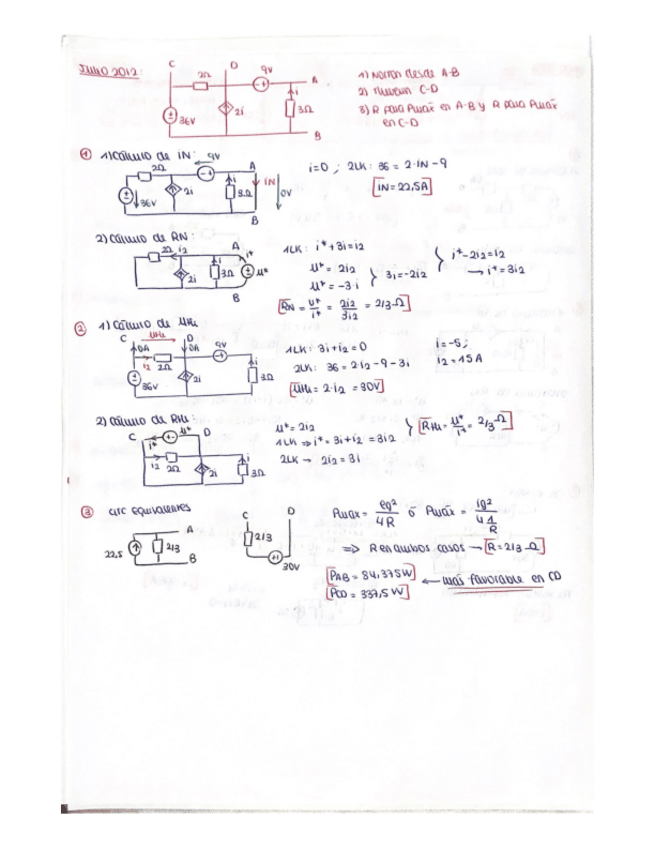 JULIO 2012:
C
D
2Ω
9V
A
i
36V
2i
3Ω
B
1) Norton desde A-B
2) Thevenin C-D
3) R para Pmáx en A-B y R para Pmáx en C-D
① 1) Cálculo de iN:
9V
2Ω
A
36V
2i
i
3Ω
iN
0V
B
i=0 ; 2LK: 36 = 2·iN-9
[iN=22,5A]
2) Cálculo de RN:
2Ω i2
A
i*
2i
i
3Ω
u*
B
1LK: i*+3i=i2
u*= 2i2
u*= -3·i
} 3i=-2i2
} i*-2i2=i2
→ i*=3i2
[RN = u*/i* = 2i2/3i2 = 2/3 Ω]
② 1) Cálculo de UTh
C
UTh
D
0A
0A
9V
i2
2Ω
36V
2i
i
3Ω
1LK: 3i+i2=0
2LK: 36=2·i2-9-3i
[UTh= 2·i2 =30V]
i=-5;
i2=15A
2) Cálculo de RTh:
C
u*
D
i*
i2
2Ω
2i
i
3Ω
u*=2i2
1LK ⇒ i*=3i+i2 =3i2
2LK → 2i2=3i
} [RTh= u*/i* = 2/3 Ω]
③ circ equivalentes
A
22,5
2/3
B
C
D
2/3
30V
Pmáx= eg²/4R ó Pmáx= ig²/4 1/R
⇒ R en ambos casos → [R=2/3 Ω]
[PAB = 84,375W]
[PCD = 337,5 W]
← más favorable en CD